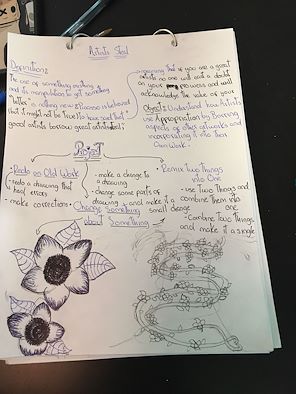 Artists Steal
Definition:
The use of something existing &
it its manipulation to get something
"better" is nothing new. Picasso is believed
(but it might not be True) to have said that
good artists borrow great artists steal
meaning that if you are a great
artists no one will cast a doubt
on your prowess and will
acknowledge the value of your
Object: Understand how Artists
use Appropriation by Borrowing
aspects of other artworks and
incorporating it into their
Own work.
Project
Redo an Old Work
- redo a drawing that
had errors
- make corrections
- make a change to
a drawing
- change some parts of
drawing and make it a
small change
Change Something
about Something
Remix Two things
into One
- use Two Things and
combine them into
one
- Combine Two Things
and make it a single